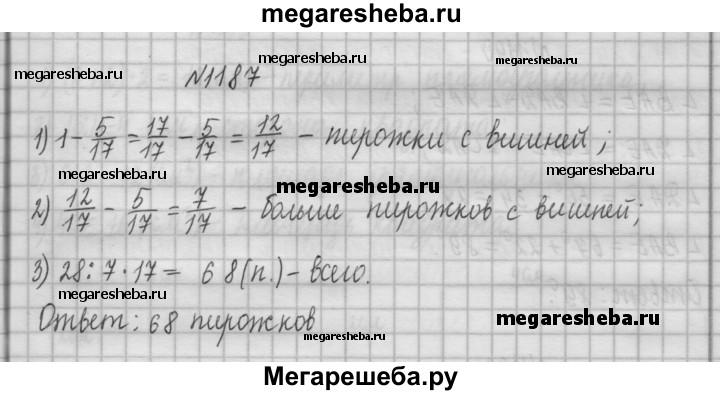 megaresheba.ru
megaresheba.ru
megaresheba.ru №1187 megaresheba.ru
1) 1 - 5/17 = 17/17 - 5/17 = 12/17 - пирожки с вишней;
megaresheba.ru
megaresheba.ru
2) 12/17 - 5/17 = 7/17 - больше пирожков с вишней;
3) 28 : 7 · 17 = 68 (п.) - всего.
megaresheba.ru
Ответ: 68 пирожков
megaresheba.ru
megaresheba.ru
Мегарешеба.ру